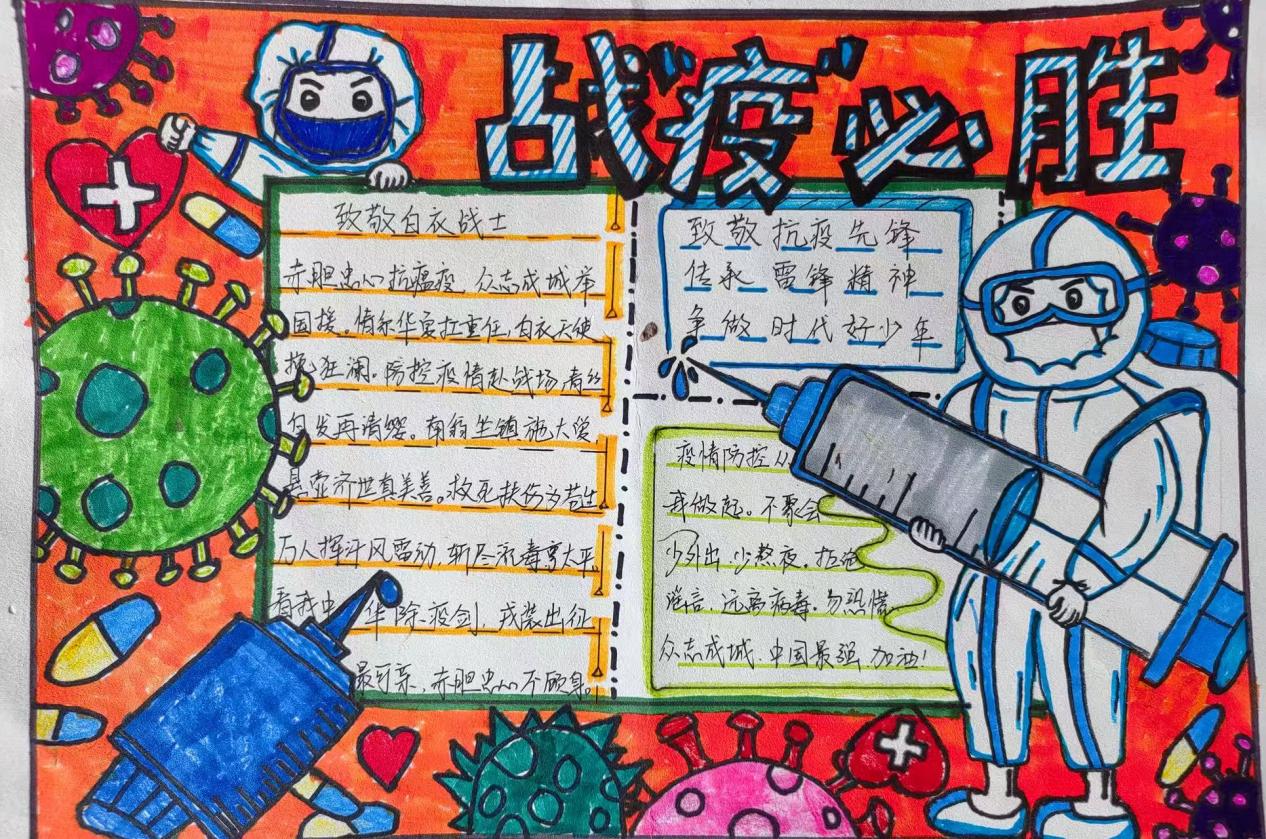 战“疫”必胜
致敬白衣战士
赤胆忠心抗瘟疫 众志成城举
国援。情系华夏担重任,白衣天使
挽狂澜。防控疫情赴战场,青丝
白发再请缨。南翁坐镇施大爱
悬壶济世真美善。救死扶伤为苍生
万人挥汗风雷动,斩尽礼毒享太平。
看我中 华除疫剑,戎装出征
最可亲,赤胆忠心不顾身。
致敬抗疫先锋
传承雷锋精神
争做时代好少年
疫情防控从
我做起。不聚会
少外出,少熬夜。拒绝
谣言,远离病毒。勿恐慌
众志成城,中国最强,加油!